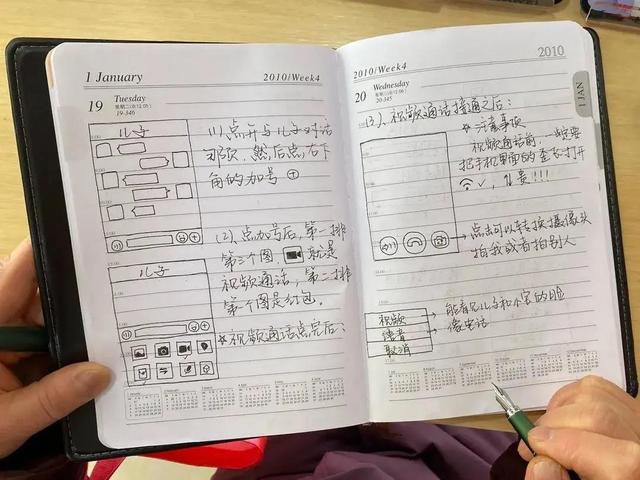 1 January
2010/Week4
19
Tuesday
19-346
儿子
(1)点开与儿子对话
那项,然后点右下
角的加号
(2)、点加号后,第一排
第三个图 就是
视频通话,第二排
第一个图是红包。
*视频通话点完后:
儿子
2010/Week4
2010
20
Wednesday
20-345
1 JAN
(3)、视频通话接通之后:
*注意事项
视频通话前,一定要
把手机里面的 打开
贵!!!
点击可以转换摄像头
拍我或者拍别人
视频
语音
取消
能看见儿子和小家的脸
像电话